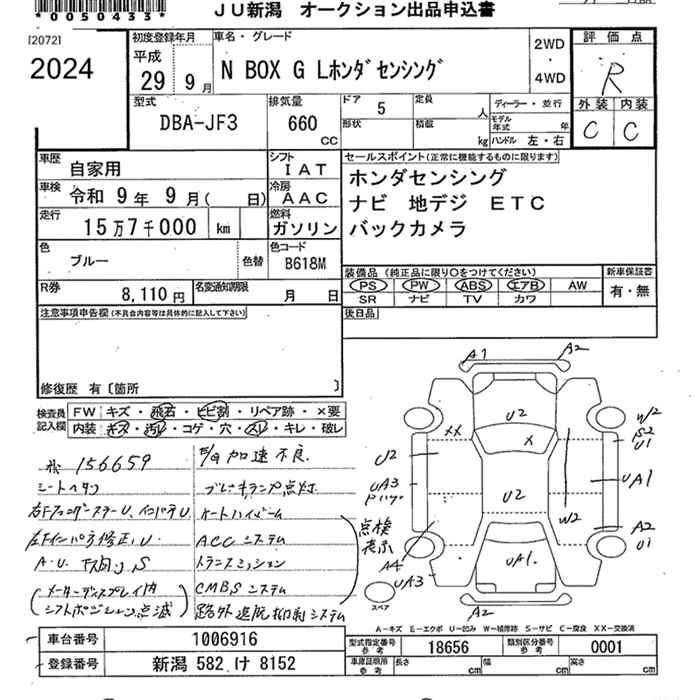 *0050433*
JU新潟 オークション出品申込書
[2072]
2024
初度登録年月
平成
29 9 月
車名・グレード
N BOX G Lホンダセンシング
2WD
・
4WD
評価点
R
外装 内装
C C
型式
DBA-JF3
排気量
660
CC
ドア 5
定員 人
形状
積載 kg
ディーラー・並行
モデル年式 年
ハンドル 左・右
車歴
自家用
シフト
IAT
車検
令和 9年 9月( 日)
冷房
AAC
走行
15万7千000 km
燃料
ガソリン
色
ブルー
色替
色コード
B618M
R券
8,110 円
名変通知期限
月 日
セールスポイント(正常に機能するものに限ります)
ホンダセンシング
ナビ 地デジ ETC
バックカメラ
装備品 (純正品に限り○をつけてください)
PS PW ABS エアB AW
SR ナビ TV カワ
新車保証書
有・無
後日品
注意事項申告欄(不具合内容等は具体的に記入して下さい)
修復歴 有〔箇所 〕
検査員
記入欄
FW キズ・飛石・ヒビ割・リペア跡・×要
内装 キズ・汚レ・コゲ・穴・スレ・キレ・破レ
156659
シートヘタリ
A・U、下廻りS
(メーターディスプレイ内
シフトポジション点滅)
E/G加速不良
ブレーキランプ点灯
オートハイビーム
ACCシステム
トランスミッション
CMBSシステム
路外逸脱抑制システム
点検
表示
A1 A2
U2
XX X
U2
W2
S2
U1
UA3
U2
UA1
W2
A2
U1
A4
UA3
UA1.
A2
スペア
A−キズ E−エクボ U−凹み W−補修跡 S−サビ C−腐食 XX−交換済
車台番号 1006916
登録番号 新潟 582 け 8152
型式指定番号
参考
18656
類別区分番号
参考
0001
車庫証明用
参考
長さ cm 幅 cm 高さ cm